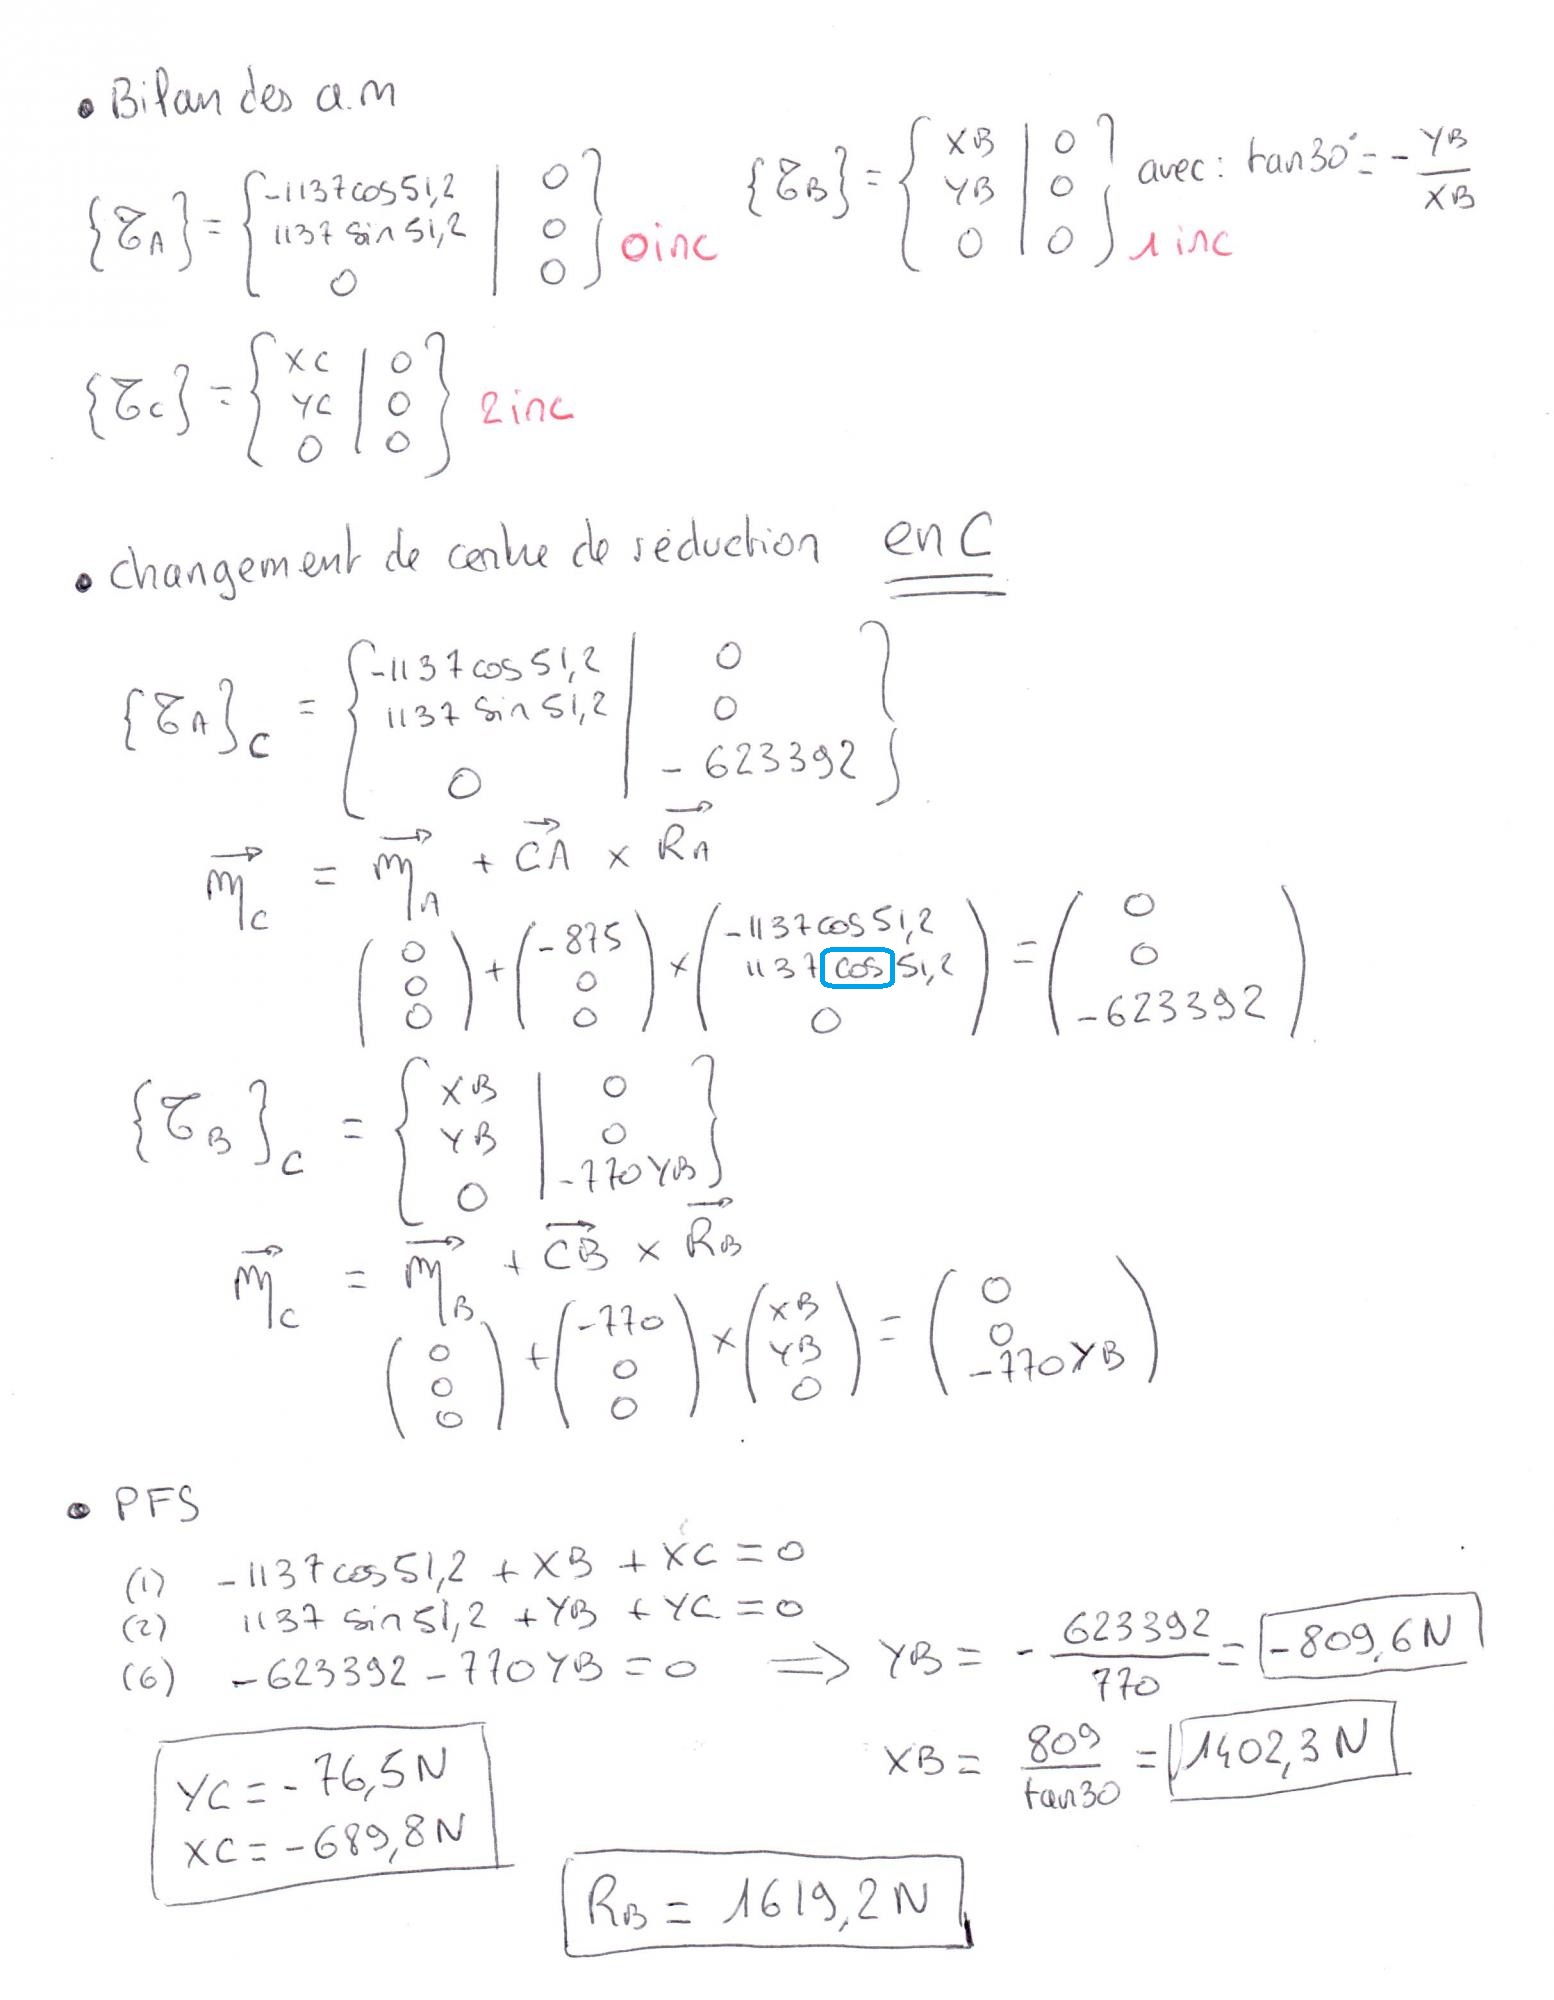 • Bilan des a.m
{𝒯A} = { -1137cos51,2 | 0
1137 sin 51,2 | 0
0 | 0 } 0inc
{𝒯B} = { XB | 0
YB | 0
0 | 0 } avec : tan30° = - YB/XB
1 inc
{𝒯C} = { XC | 0
YC | 0
0 | 0 } 2inc
• changement de centre de réduction en C
{𝒯A}C = { -1137cos51,2 | 0
1137 sin 51,2 | 0
0 | -623392 }
→mC = →mA + →CA × →RA
(0 0 0) + (-875 0 0) × (-1137cos51,2 1137cos51,2 0) = (0 0 -623392)
{𝒯B}C = { XB | 0
YB | 0
0 | -770YB }
→mC = →mB + →CB × →RB
(0 0 0) + (-770 0 0) × (XB YB 0) = (0 0 -770YB)
• PFS
(1) -1137cos51,2 + XB + XC = 0
(2) 1137 sin51,2 + YB + YC = 0
(6) -623392 - 770YB = 0 => YB = - 623392/770 = -809,6N
XB = 809/tan30 = 1402,3N
YC = -76,5N
XC = -689,8N
RB = 1619,2N